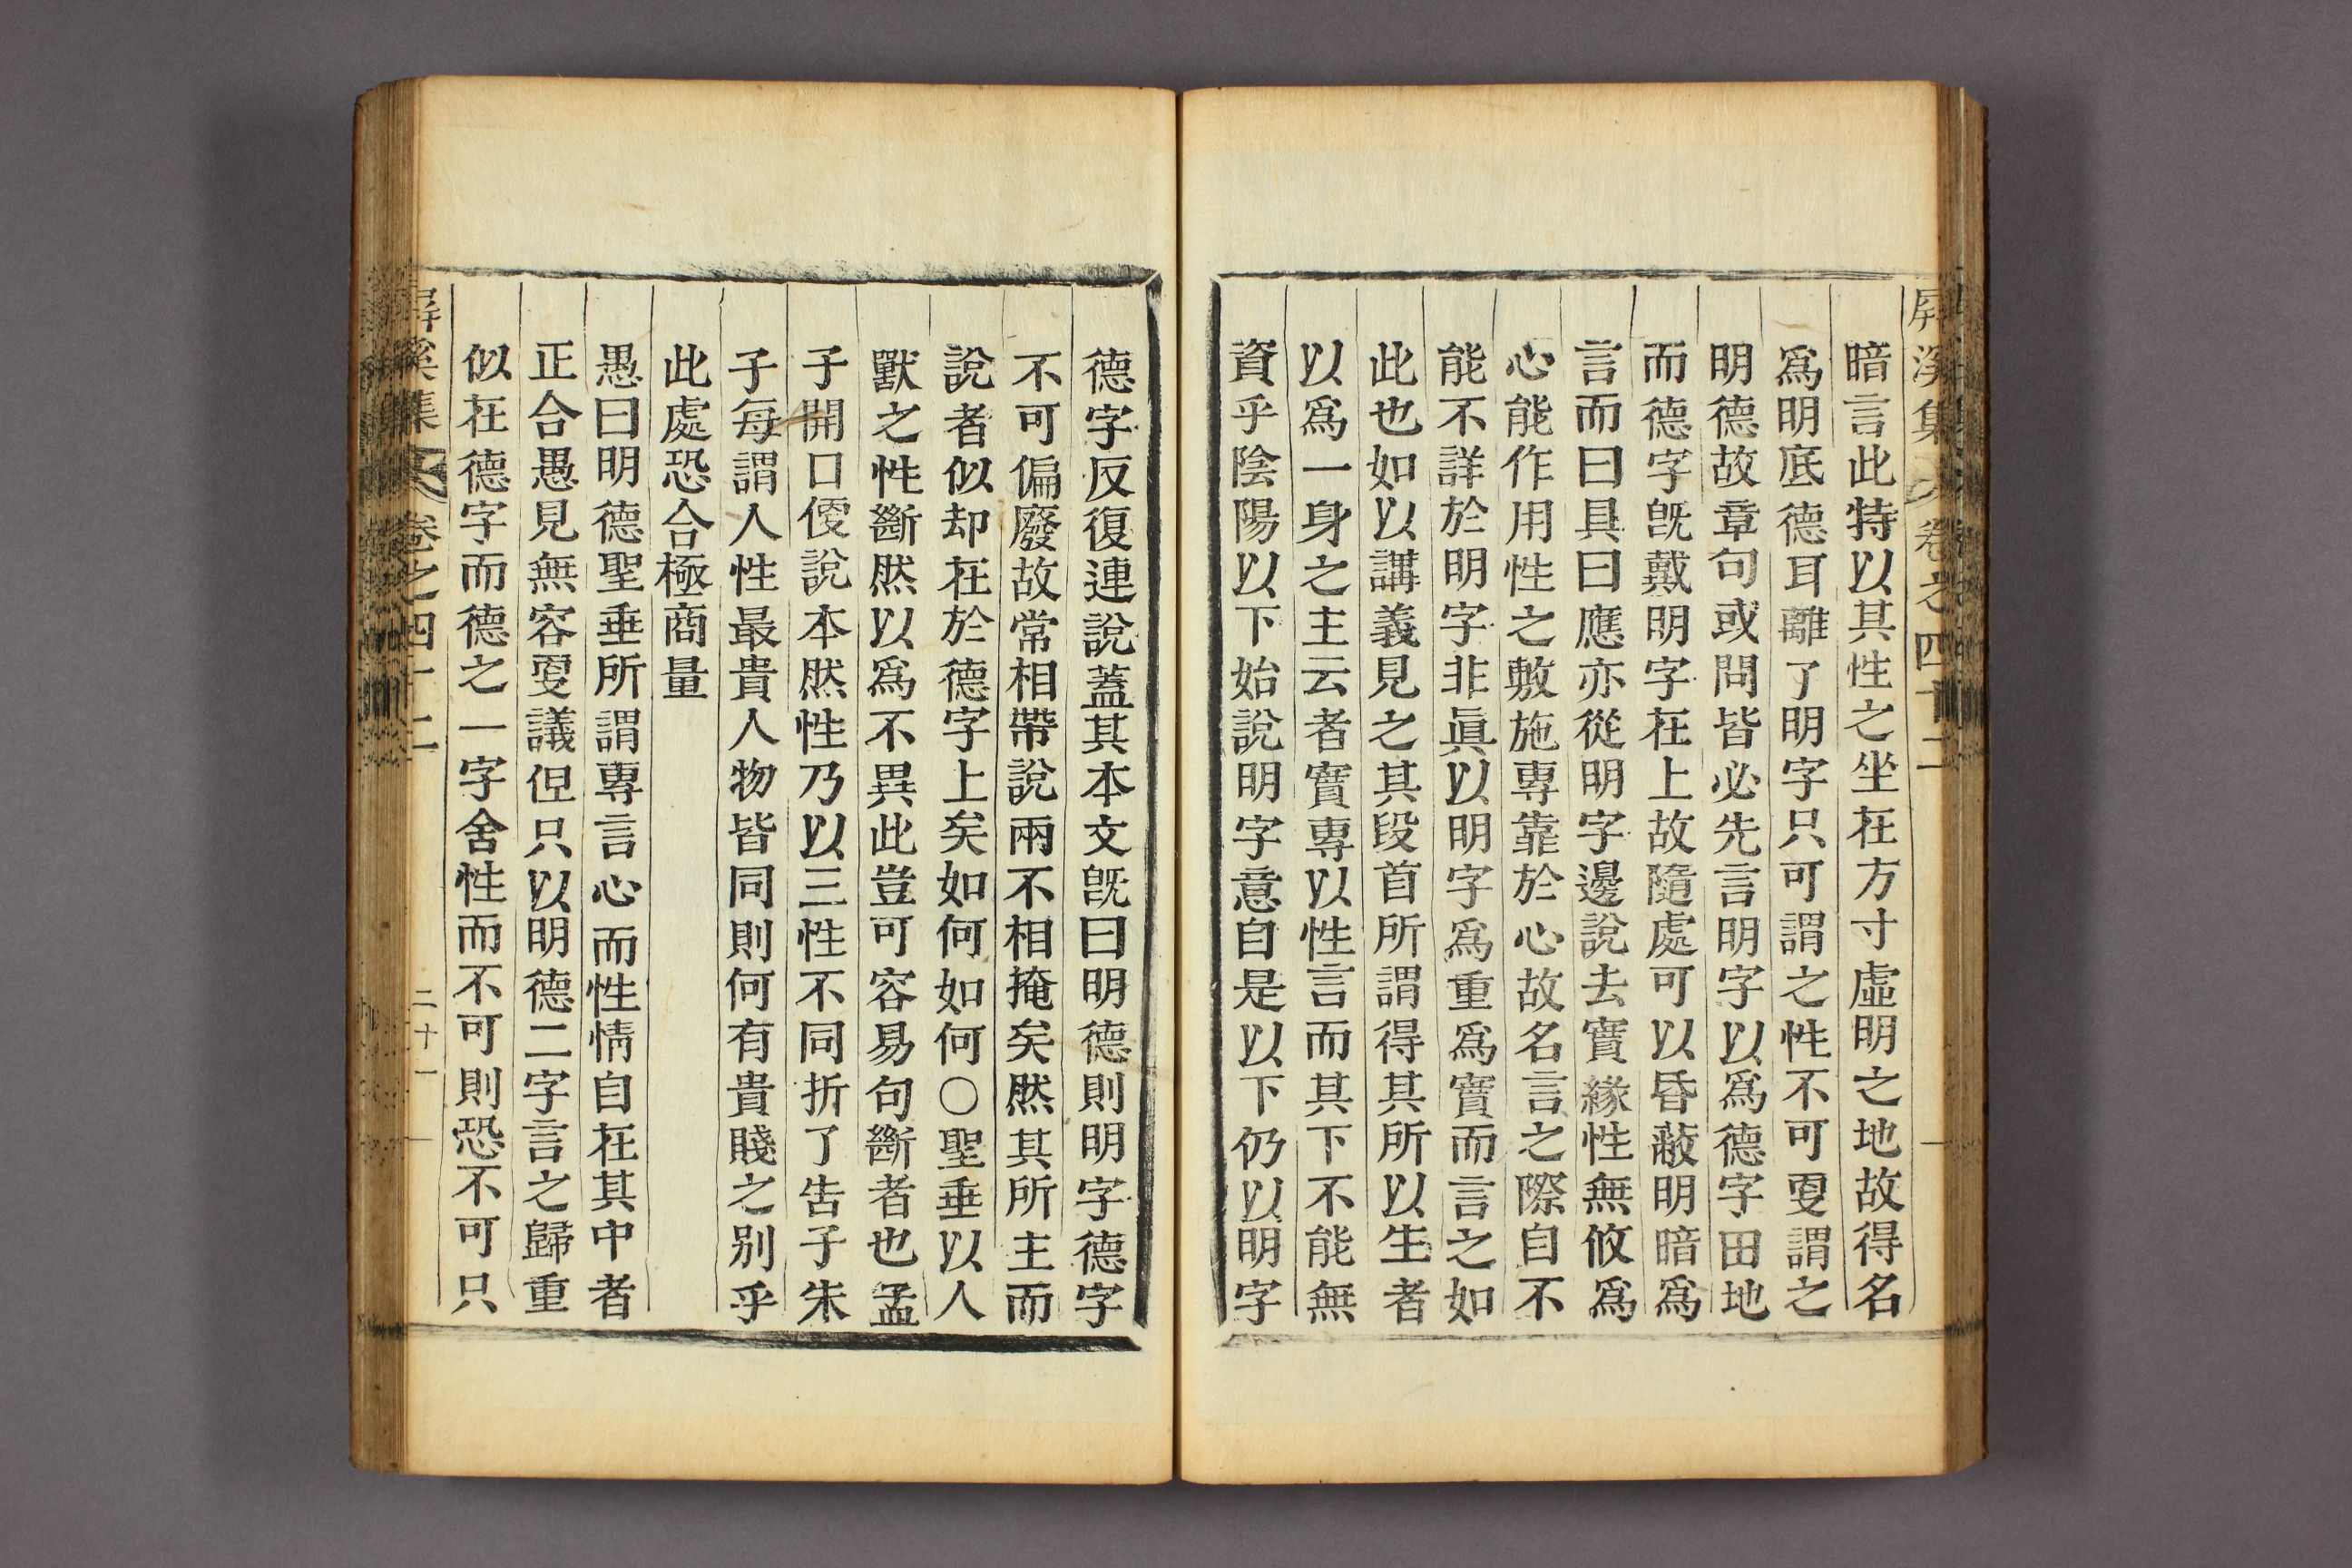 屏溪集 卷之四十二
暗言此特以其性之坐在方寸虛明之地故得名
爲明底德耳離了明字只可謂之性不可更謂之
明德故章句或問皆必先言明字以爲德字田地
而德字旣戴明字在上故隨處可以昏蔽明暗爲
言而曰具曰應亦從明字邊說去實緣性無攸爲
心能作用性之敷施專靠於心故名言之際自不
能不詳於明字非眞以明字爲重爲實而言之如
此也如以講義見之其段首所謂得其所以生者
以爲一身之主云者實專以性言而其下不能無
資乎陰陽以下始說明字意自是以下仍以明字
德字反復連說蓋其本文旣曰明德則明字德字
不可偏廢故常相帶說兩不相掩矣然其所主而
說者似却在於德字上矣如何如何○聖垂以人
獸之性斷然以爲不異此豈可容易句斷者也孟
子開口便說本然性乃以三性不同折了告子朱
子每謂人性最貴人物皆同則何有貴賤之別乎
此處恐合極商量
愚曰明德聖垂所謂專言心而性情自在其中者
正合愚見無容更議但只以明德二字言之歸重
似在德字而德之一字舍性而不可則恐不可只
屏溪集 卷之四十二 二十一